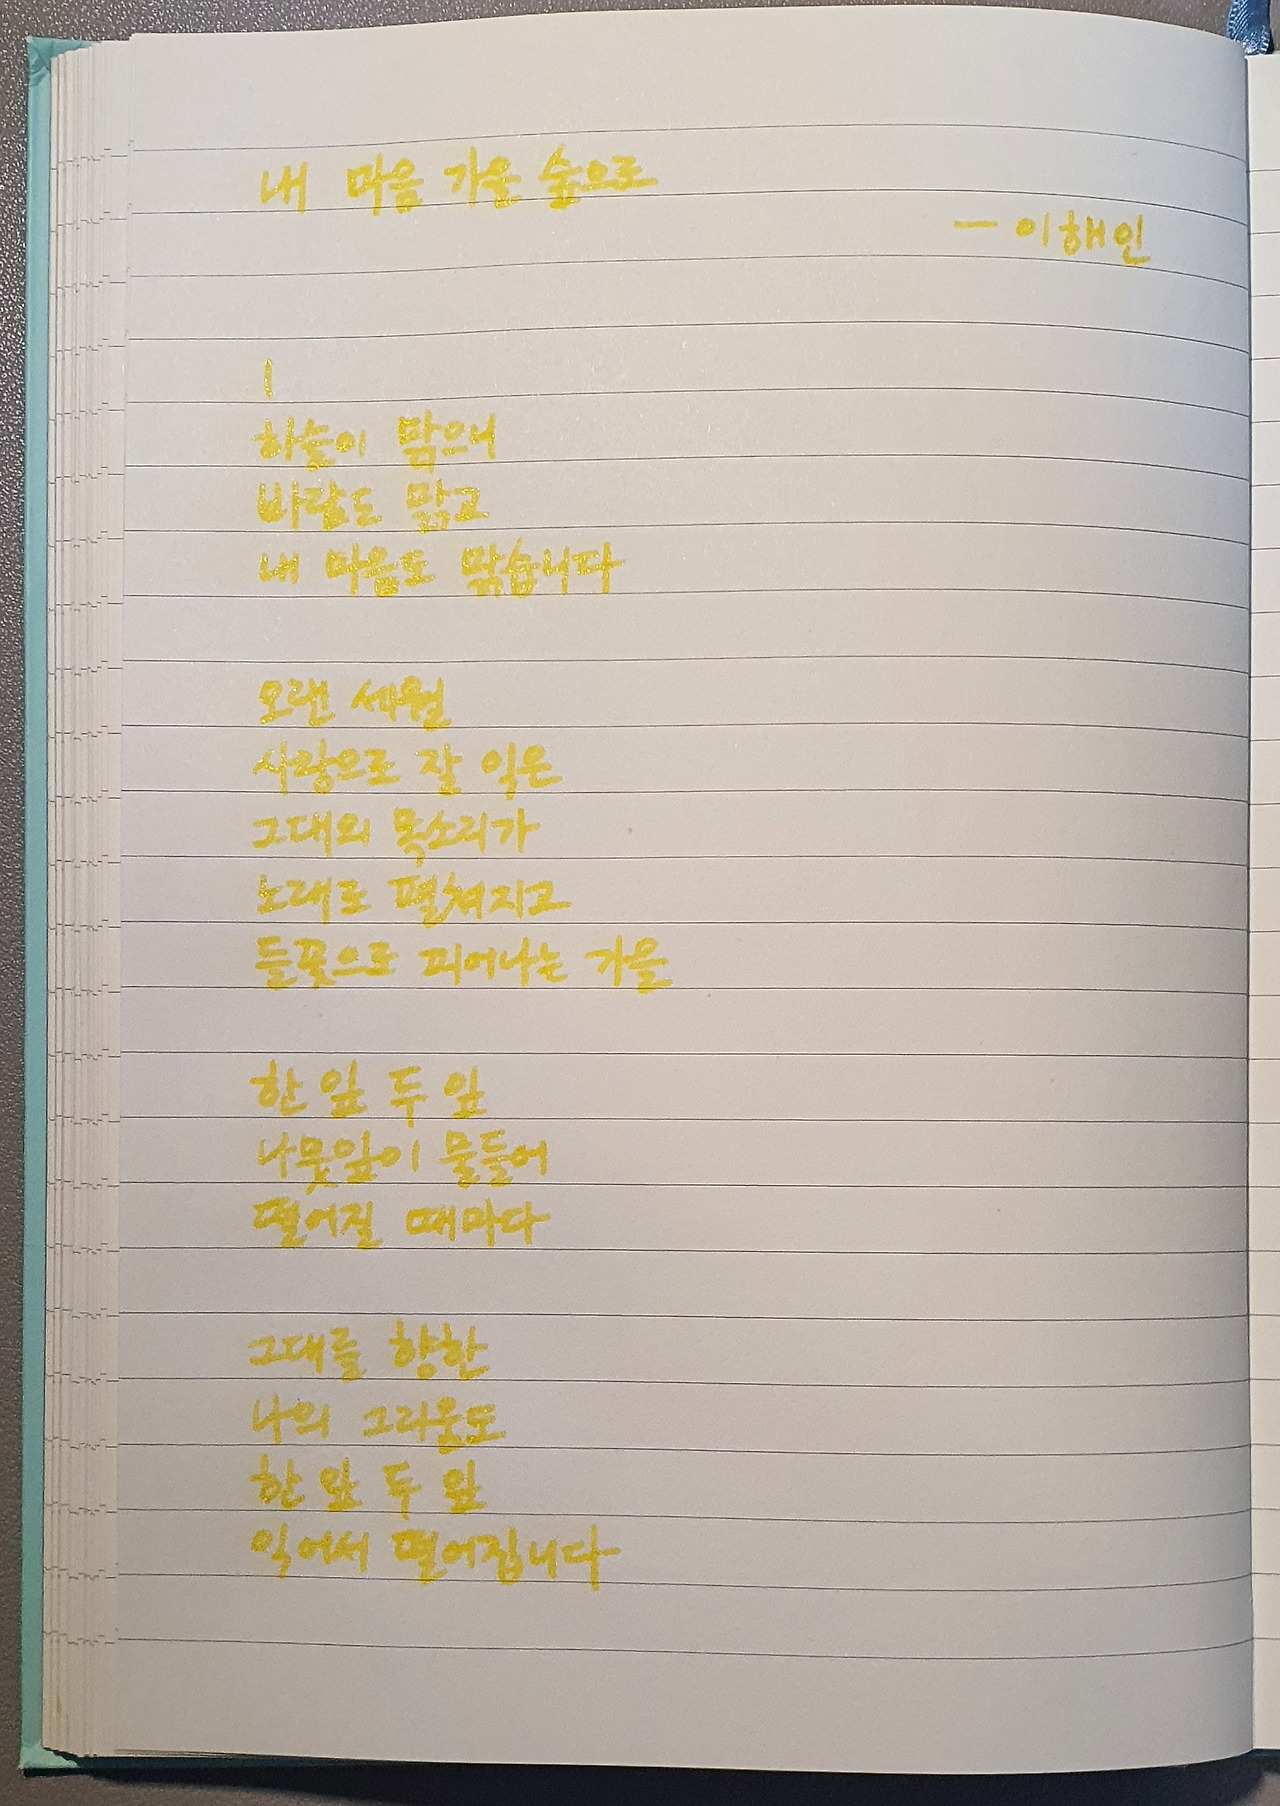 내 마음 가을 숲으로
— 이해인
1
하늘이 맑으니
바람도 맑고
내 마음도 맑습니다
오랜 세월
사랑으로 잘 익은
그대의 목소리가
노래로 펼쳐지고
들꽃으로 피어나는 가을
한 잎 두 잎
나뭇잎이 물들어
떨어질 때마다
그대를 향한
나의 그리움도
한 잎 두 잎
익어서 떨어집니다